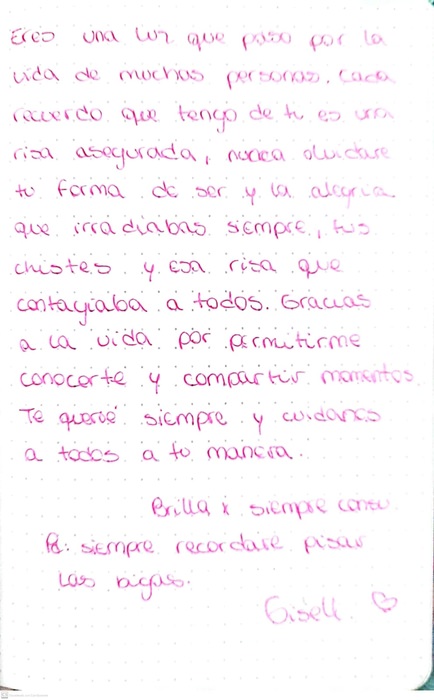 Eres una luz que paso por la
vida de muchas personas. Cada
recuerdo que tengo de tu es una
risa asegurada, nunca olvidare
tu forma de ser y la alegria
que irradiabas siempre, tus
chistes y esa risa que
contagiaba a todos. Gracias
a la vida por permitirme
conocerte y compartir momentos
Te querré siempre y cuidanos
a todos a tu manera.
Brilla x siempre consu
Pd: siempre recordare pisar
las bigas.
Gisell